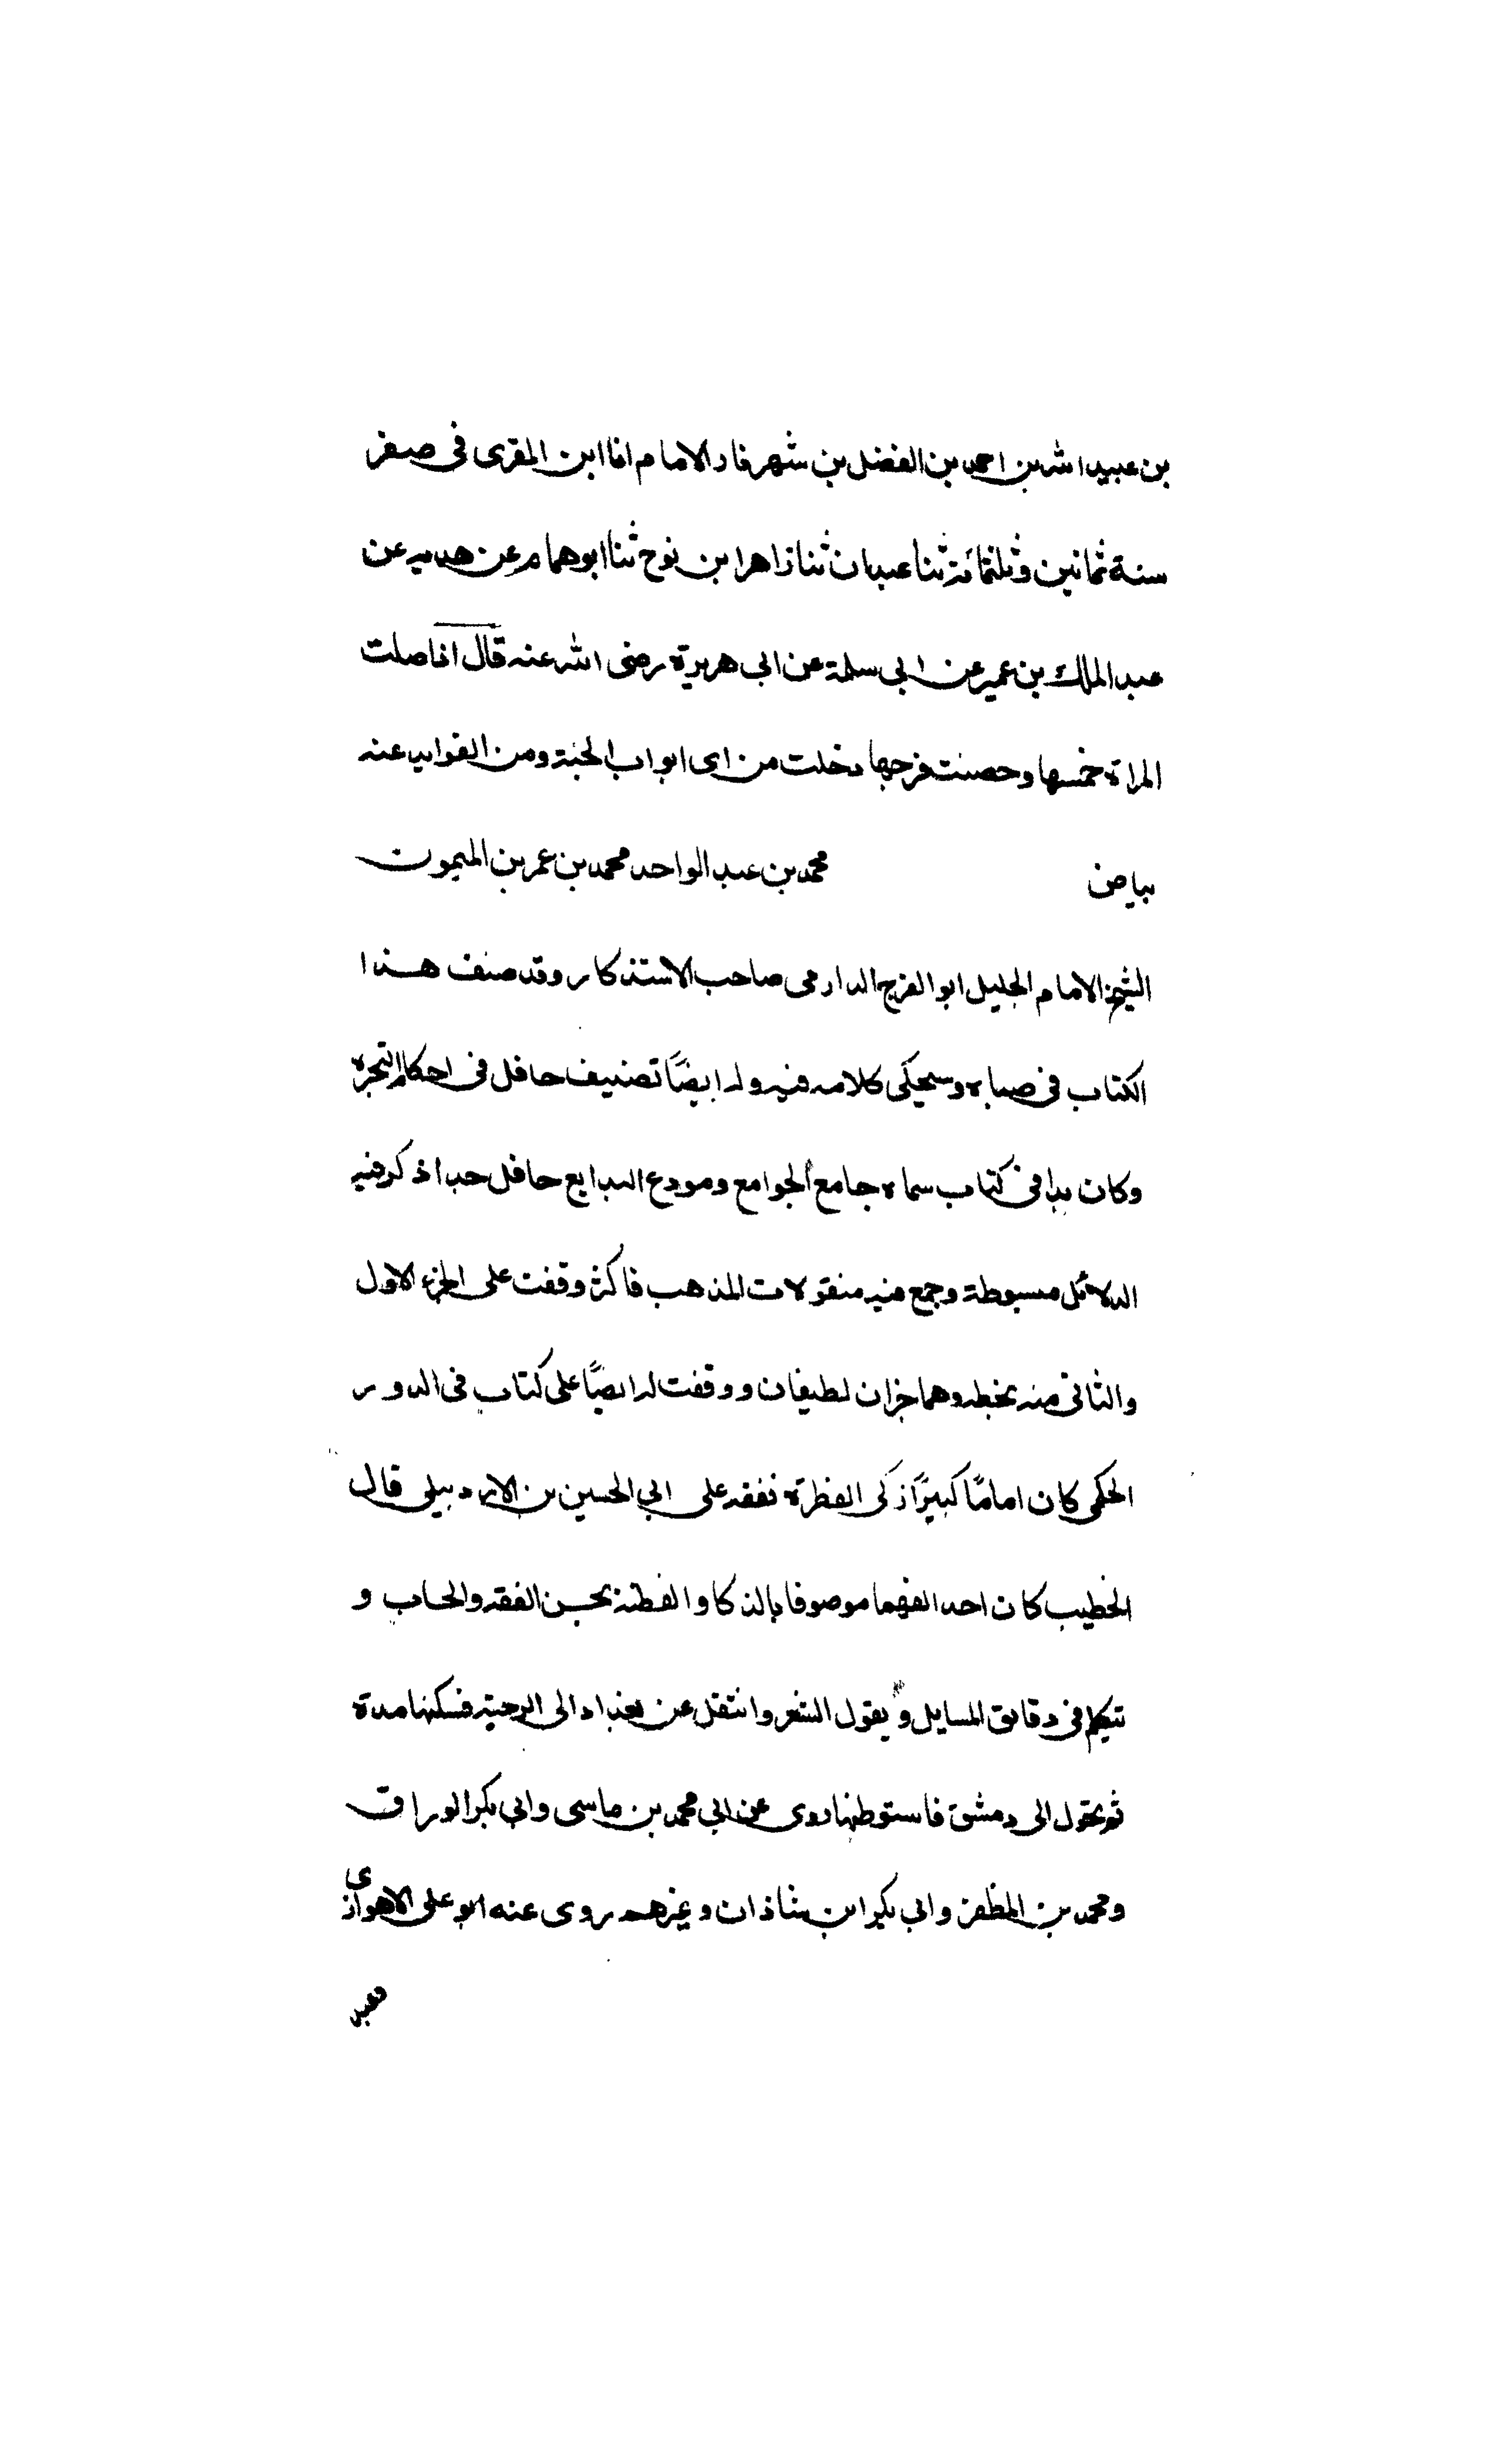 بن عبيد الله بن احمد بن الفضل بن شهرفاد الامام انا ابن المقرى فى صفر
سنة ثمانين وثلثمائة ثنا عبدان ثنا زاهر ابن نوح ثنا ابوهمام عن هدبه عن
عبد الملك بن عمير عن ابى سلمة عن ابى هريرة رضى الله عنه قال اذا صلت
المراة خمسها وحصنت فرجها دخلت من اى ابواب الجنة ومن الفوايد عنه
بياض محمد بن عبد الواحد محمد بن عمر بن الميمون
الشيخ الامام الجليل ابو الفرج الدارمى صاحب الاستذكار وقد صنف هذا
الكتاب فى صباه وسيحكى كلامه فيه وله ايضًا تصنيف حافل فى احكام المتحيره
وكان بدا فى كتاب سماه جامع الجوامع ومودع البدايع حافل جدا ذكر فيه
الدلائل مبسوطة وجمع فيه منقولات المذهب فاكثر وقفت على الجزء الاول
والثانى منه بخطه وهما جزان لطيفان ووقفت له ايضًا على كتاب فى الدور
الحكمى كان امامًا كبيرًا ذكى الفطرة تفقه على ابى الحسين بن الاردبيلى قال
الخطيب كان احد الفقها موصوفا بالذكا والفطنة بحسن الفقه والحساب و
يتكلم فى دقايق المسايل ويقول الشعر وانتقل عن بغداد الى الرحبة فسكنها مدة
ثم تحول الى دمشق فاستوطنها روى عن ابى محمد بن ماسى وابى بكر الوراق
ومحمد بن المظفر وابى بكر ابن شاذان وغيرهم روى عنه ابو على الاهوازى
وعبد